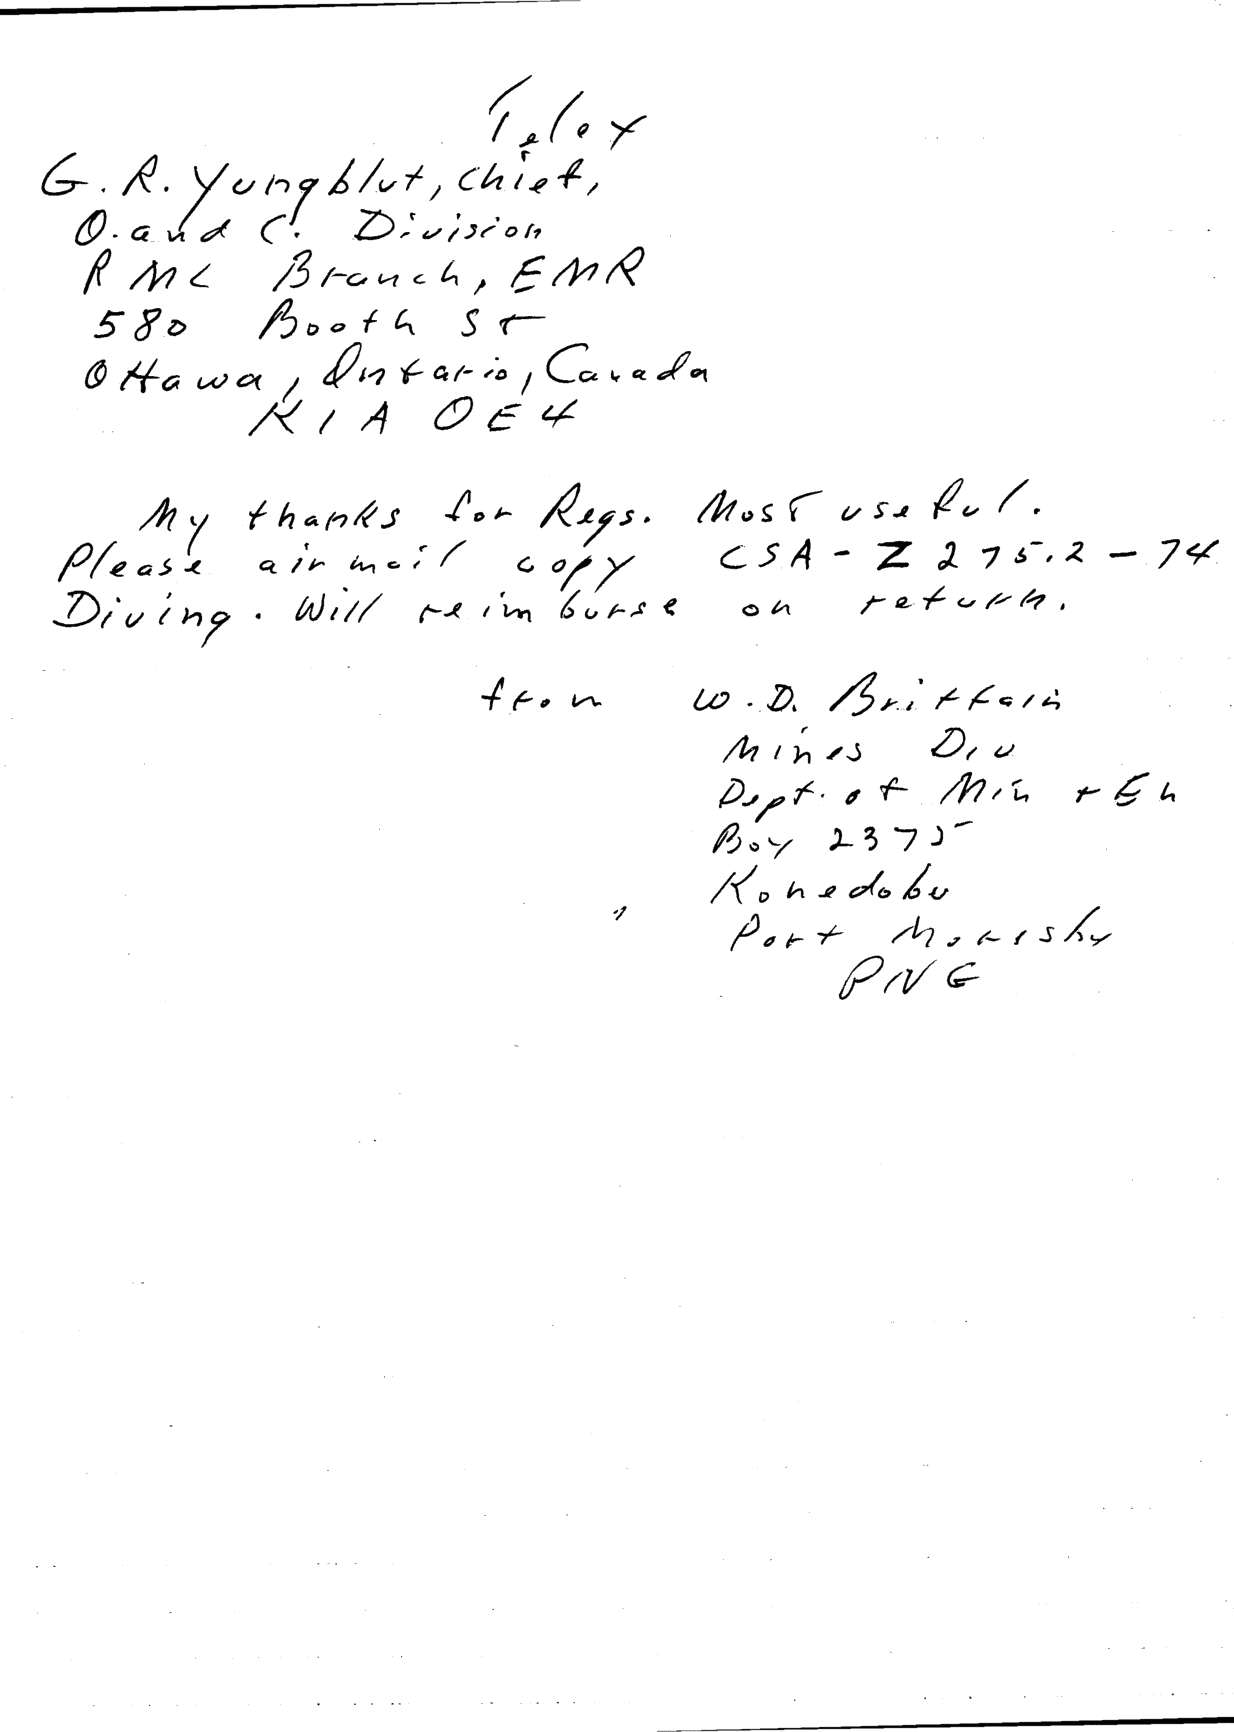 Telex
G. R. Yungblut, Chief,
O. and C. Division
RMC Branch, EMR
580 Booth St
Ottawa, Ontario, Canada
K1A OE4
My thanks for Regs. Most useful.
Please airmail copy CSA - Z 275.2 - 74
Diving. Will reimburse on return.
from W. D. Brittain
Mines Div
Dept. of Min + En
Box 2375
Konedobu
Port Moresby
PNG